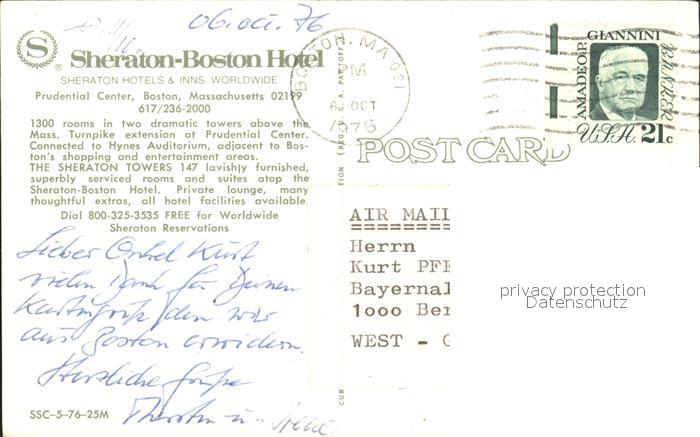 06. Oct. 76
S
Sheraton-Boston Hotel
SHERATON HOTELS & INNS, WORLDWIDE
Prudential Center, Boston, Massachusetts 02199
617/236-2000
1300 rooms in two dramatic towers above the
Mass. Turnpike extension at Prudential Center.
Connected to Hynes Auditorium, adjacent to Bos-
ton's shopping and entertainment areas.
THE SHERATON TOWERS 147 lavishly furnished,
superbly serviced rooms and suites atop the
Sheraton-Boston Hotel. Private lounge, many
thoughtful extras, all hotel facilities available.
Dial 800-325-3535 FREE for Worldwide
Sheraton Reservations
Lieber Onkel Kurt
vielen Dank für Deinen
Kartengruß den wir
aus Boston erwidern.
Herzliche Grüße
Thorsten u. Irene
SSC-5-76-25M
BOSTON, MA 021
PM
6 OCT
1976
AMADEO P. GIANNINI
BANKER
USA 21c
POST CARD
AIR MAIL
Herrn
Kurt PFE
Bayernal
1000 Ber
WEST - G
privacy protection
Datenschutz
CUR